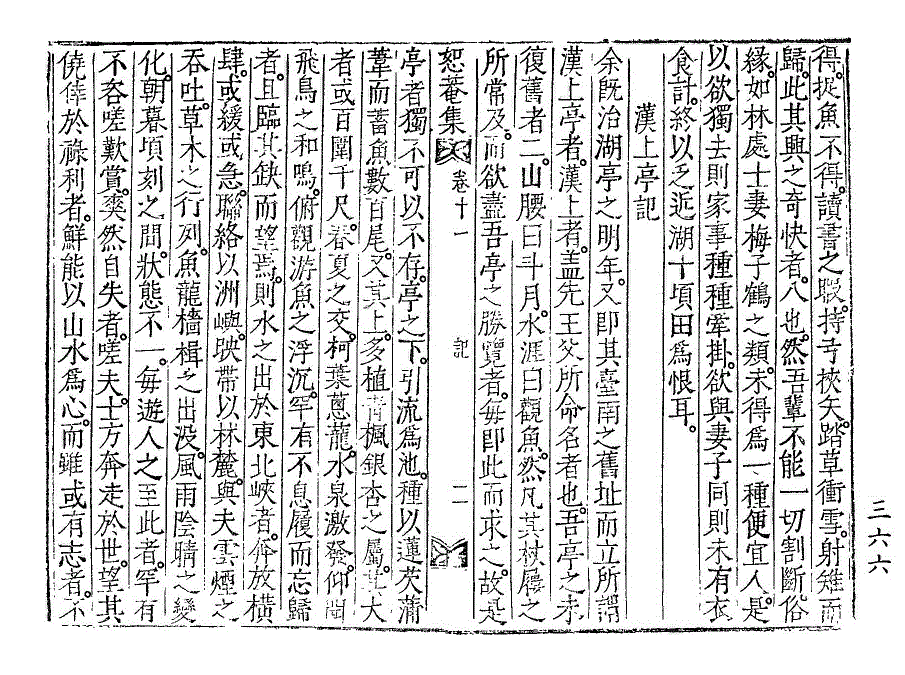 得。捉魚不得。讀書之暇。持弓挾矢。踏草衝雪。射雉而
歸。此其興之奇快者。八也。然吾輩不能一切割斷俗
緣。如林處士妻梅子鶴之類。未得爲一種便宜人。是
以欲獨去則家事種種牽掛。欲與妻子同則未有衣
食計。終以乏近湖十頃田爲恨耳。
漢上亭記
余旣治湖亭之明年。又卽其臺南之舊址而立所謂
漢上亭者。漢上者。盖先王父所命名者也。吾亭之未
復舊者二。山腰曰斗月。水涯曰觀魚。然凡其杖屨之
所常及。而欲盡吾亭之勝覽者。每卽此而求之。故是
恕菴集 卷十一 記 二
亭者獨不可以不存。亭之下。引流爲池。種以蓮芡蒲
葦而蓄魚數百尾。又其上。多植靑楓銀杏之屬。其大
者或百圍千尺。春夏之交。柯葉蔥蘢。水泉激發。仰聞
飛鳥之和鳴。俯觀游魚之浮沉。罕有不息履而忘歸
者。且臨其缺而望焉。則水之出於東北峽者。奔放橫
肆。或緩或急。聯絡以洲嶼。映帶以林麓。與夫雲煙之
吞吐。草木之行列。魚龍檣楫之出沒。風雨陰晴之變
化。朝暮頃刻之間。狀態不一。每遊人之至此者。罕有
不咨嗟歎賞。爽然自失者。嗟夫。士方奔走於世。望其
僥倖於祿利者。鮮能以山水爲心。而雖或有志者。不
三六六